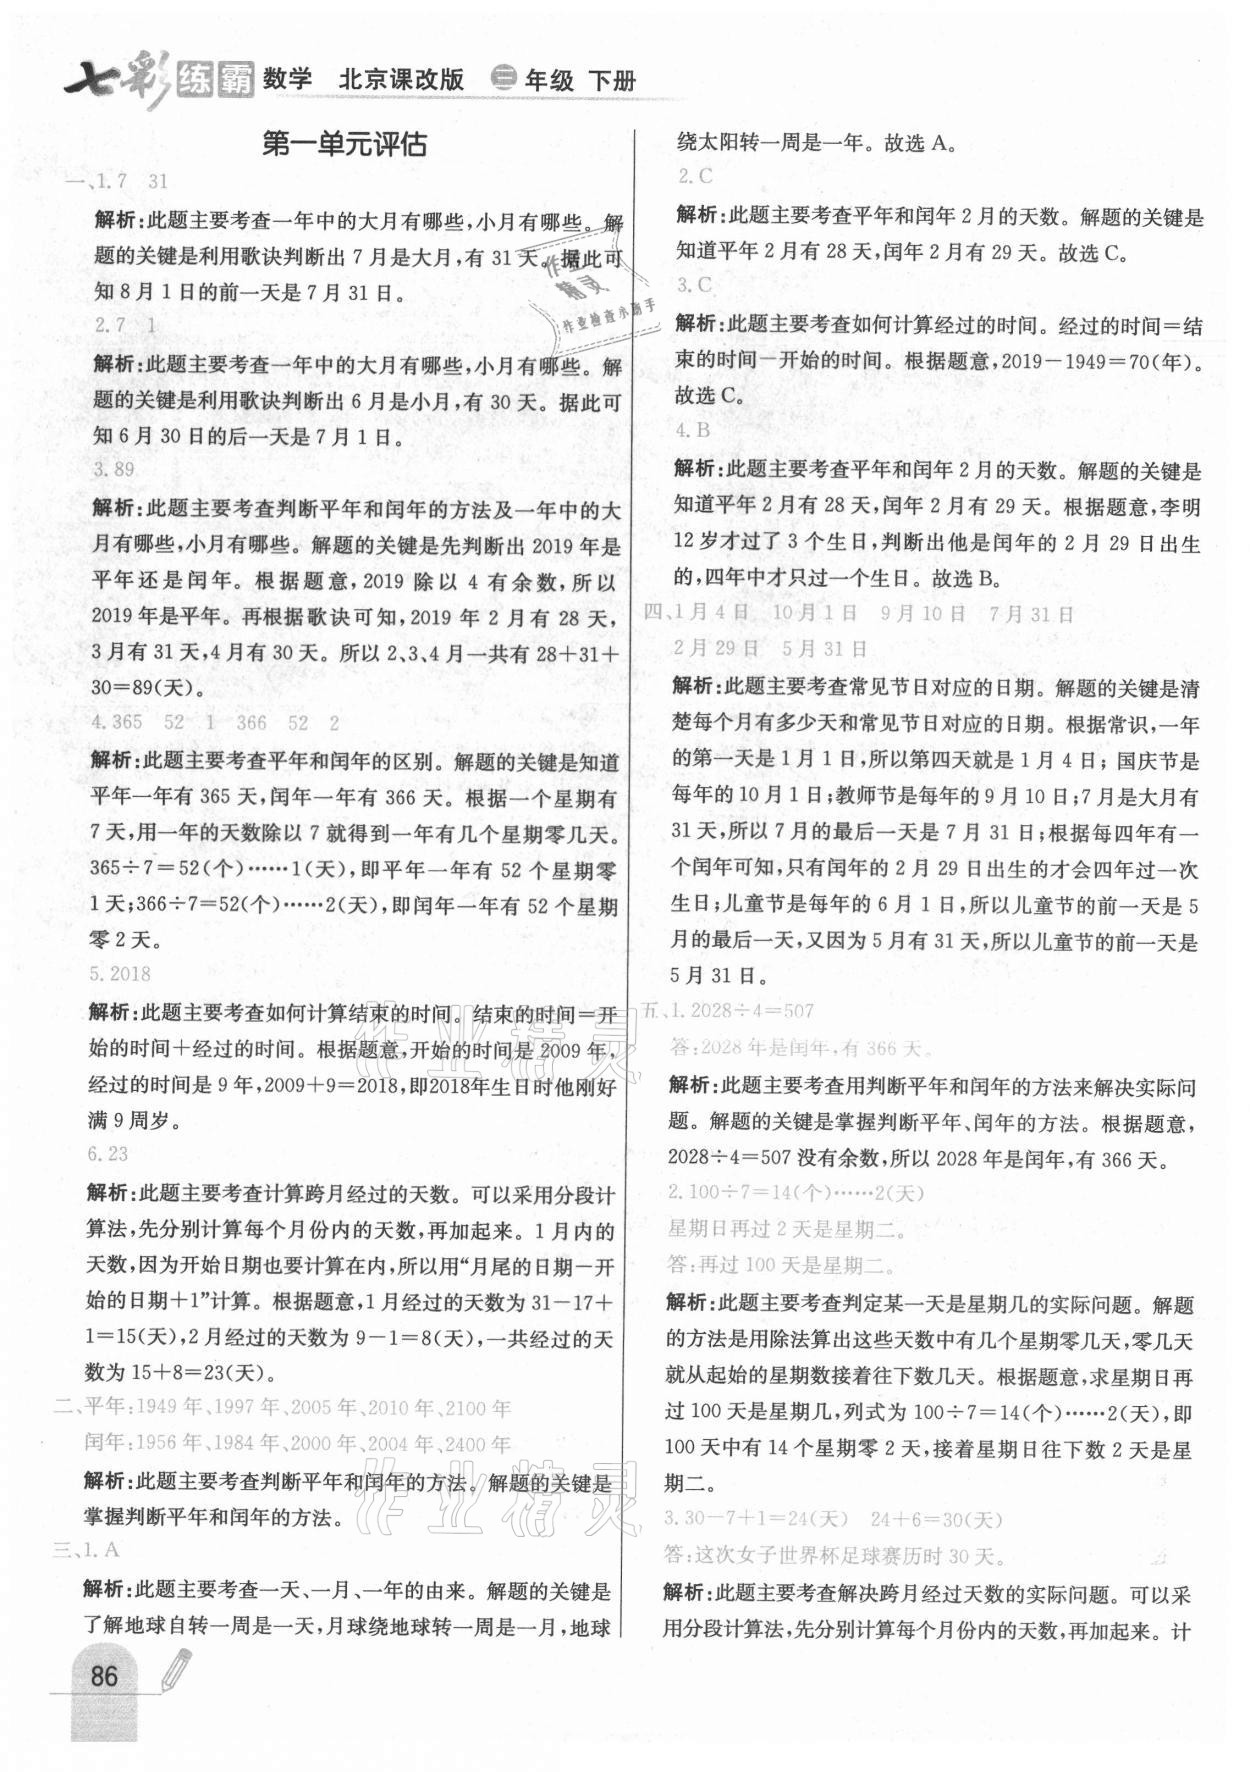 七彩练霸 数学 北京课改版 三年级 下册
第一单元评估
一、1.7 31
解析:此题主要考查一年中的大月有哪些,小月有哪些。解
题的关键是利用歌诀判断出 7 月是大月,有 31 天。据此可
知 8 月 1 日的前一天是 7 月 31 日。
2.7 1
解析:此题主要考查一年中的大月有哪些,小月有哪些。解
题的关键是利用歌诀判断出 6 月是小月,有 30 天。据此可
知 6 月 30 日的后一天是 7 月 1 日。
3.89
解析:此题主要考查判断平年和闰年的方法及一年中的大
月有哪些,小月有哪些。解题的关键是先判断出 2019 年是
平年还是闰年。根据题意,2019 除以 4 有余数,所以
2019 年是平年。再根据歌诀可知,2019 年 2 月有 28 天,
3 月有 31 天,4 月有 30 天。所以 2、3、4 月一共有 28+31+
30=89(天)。
4.365 52 1 366 52 2
解析:此题主要考查平年和闰年的区别。解题的关键是知道
平年一年有 365 天,闰年一年有 366 天。根据一个星期有
7 天,用一年的天数除以 7 就得到一年有几个星期零几天。
365÷7=52(个)……1(天),即平年一年有 52 个星期零
1 天;366÷7=52(个)……2(天),即闰年一年有 52 个星期
零 2 天。
5.2018
解析:此题主要考查如何计算结束的时间。结束的时间=开
始的时间+经过的时间。根据题意,开始的时间是 2009 年,
经过的时间是 9 年,2009+9=2018,即2018年生日时他刚好
满 9 周岁。
6.23
解析:此题主要考查计算跨月经过的天数。可以采用分段计
算法,先分别计算每个月份内的天数,再加起来。1 月内的
天数,因为开始日期也要计算在内,所以用“月尾的日期-开
始的日期+1”计算。根据题意,1 月经过的天数为 31-17+
1=15(天),2 月经过的天数为 9-1=8(天),一共经过的天
数为 15+8=23(天)。
二、平年:1949 年、1997 年、2005 年、2010 年、2100 年
闰年:1956 年、1984 年、2000 年、2004 年、2400 年
解析:此题主要考查判断平年和闰年的方法。解题的关键是
掌握判断平年和闰年的方法。
三、1. A
解析:此题主要考查一天、一月、一年的由来。解题的关键是
了解地球自转一周是一天,月球绕地球转一周是一月,地球
86
绕太阳转一周是一年。故选 A。
2. C
解析:此题主要考查平年和闰年 2 月的天数。解题的关键是
知道平年 2 月有 28 天,闰年 2 月有 29 天。故选C。
3. C
解析:此题主要考查如何计算经过的时间。经过的时间=结
束的时间-开始的时间。根据题意,2019-1949=70(年)。
故选C。
4. B
解析:此题主要考查平年和闰年 2 月的天数。解题的关键是
知道平年 2 月有 28 天,闰年 2 月有 29 天。根据题意,李明
12 岁才过了 3 个生日,判断出他是闰年的 2 月 29 日出生
的,四年中才只过一个生日。故选 B。
四、1 月 4 日 10 月 1 日 9 月 10 日 7 月 31 日
2 月 29 日 5 月 31 日
解析:此题主要考查常见节日对应的日期。解题的关键是清
楚每个月有多少天和常见节日对应的日期。根据常识,一年
的第一天是 1 月 1 日,所以第四天就是 1 月 4 日;国庆节是
每年的 10 月 1 日;教师节是每年的 9 月 10 日;7 月是大月有
31 天,所以 7 月的最后一天是 7 月 31 日;根据每四年有一
个闰年可知,只有闰年的 2 月 29 日出生的才会四年过一次
生日;儿童节是每年的 6 月 1 日,所以儿童节的前一天是 5
月的最后一天,又因为 5 月有 31 天,所以儿童节的前一天是
5 月 31 日。
五、1. 2028÷4=507
答:2028 年是闰年,有 366 天。
解析:此题主要考查用判断平年和闰年的方法来解决实际问
题。解题的关键是掌握判断平年、闰年的方法。根据题意,
2028÷4=507 没有余数,所以 2028 年是闰年,有 366 天。
2. 100÷7=14(个)……2(天)
星期日再过 2 天是星期二。
答:再过 100 天是星期二。
解析:此题主要考查判定某一天是星期几的实际问题。解题
的方法是用除法算出这些天数中有几个星期零几天,零几天
就从起始的星期数接着往下数几天。根据题意,求星期日再
过 100 天是星期几,列式为 100÷7=14(个)……2(天),即
100 天中有 14 个星期零 2 天,接着星期日往下数 2 天是星
期二。
3. 30-7+1=24(天) 24+6=30(天)
答:这次女子世界杯足球赛历时 30 天。
解析:此题主要考查解决跨月经过天数的实际问题。可以采
用分段计算法,先分别计算每个月份内的天数,再加起来。计
作业
精灵
作业检查小助手
作业精灵
作业精灵